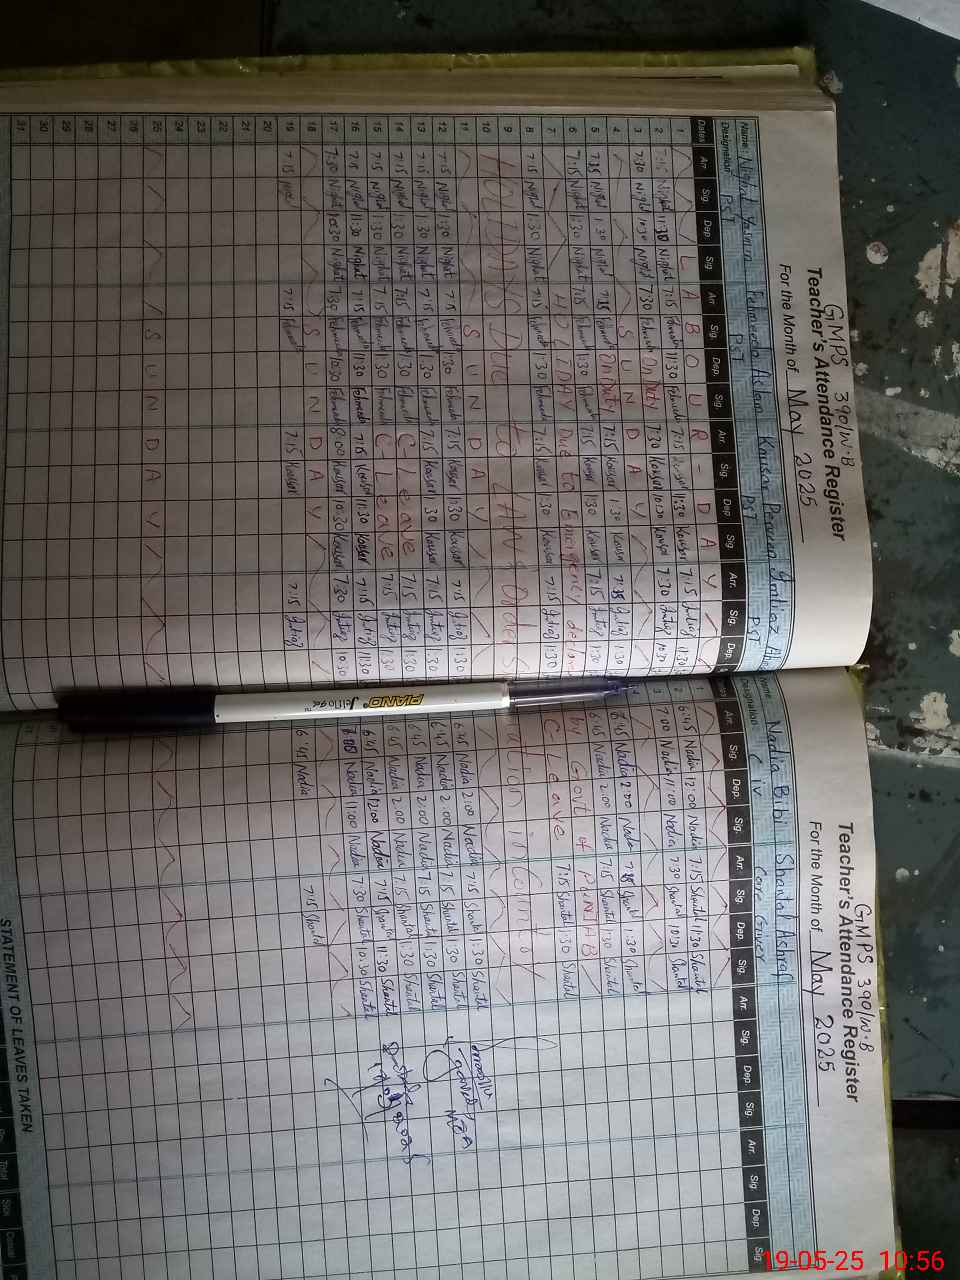 GMPS 390/W.B
Teacher's Attendance Register
For the Month of May 2025
Name: Nighat Yasmin Fehmeeda Aslam Kausar Perveen Imtiaz
Designation PST PST PST PST
Dates Arr. Sig. Dep. Sig. Arr. Sig. Dep. Sig. Arr. Sig. Dep. Sig. Arr. Sig. Dep.
1 LABOUR-DAY
2 7:15 Nighat 11:30 Nighat 7:15 Fehmeeda 11:30 Fehmeeda 7:15 Kousar 11:30 Kousar 7:15 11:30
3 7:30 Nighat 10:30 Nighat 7:30 Fehmeeda On Duty 7:30 Kousar 10:30 Kousar 7:30 10:30
4 SUNDAY
5 7:15 Nighat 1:30 Nighat 7:15 Fehmeeda On Duty 7:15 Kousar 1:30 Kousar 7:15 1:30
6 7:15 Nighat 1:30 Nighat 7:15 Fehmeeda 1:30 Fehmeeda 7:15 Kousar 1:30 Kousar 7:15 1:30
7 HOLIDAY Due to Emergency
8 7:15 Nighat 1:30 Nighat 7:15 Fehmeeda 1:30 Fehmeeda 7:15 Kousar 1:30 Kousar 7:15 1:30
9 HOLIDAYS Due to LAW & Order
10
11 SUNDAY
12 7:15 Nighat 1:30 Nighat 7:15 Fehmeeda 1:30 Fehmeeda 7:15 Kousar 1:30 Kousar 7:15 1:30
13 7:15 Nighat 1:30 Nighat 7:15 Fehmeeda 1:30 Fehmeeda 7:15 Kousar 1:30 Kousar 7:15 1:30
14 7:15 Nighat 1:30 Nighat 7:15 Fehmeeda 1:30 Fehmeeda C-Leave 7:15 1:30
15 7:15 Nighat 1:30 Nighat 7:15 Fehmeeda 1:30 Fehmeeda C-Leave 7:15 1:30
16 7:15 Nighat 11:30 Nighat 7:15 Fehmeeda 11:30 Fehmeeda 7:15 Kousar 11:30 Kousar 7:15 11:30
17 7:30 Nighat 10:30 Nighat 7:30 Fehmeeda 10:30 Fehmeeda 8:00 Kousar 10:30 Kousar 7:30 10:30
18 SUNDAY
19 7:15 7:15 Fehmeeda 7:15 Kousar 7:15
20
21
22
23
24
25 SUNDAY
26
27
28
29
30
31
GMPS 390/W.B
Teacher's Attendance Register
For the Month of May 2025
Name Nadia Bibi Shantal Ashraf
Designation C iv Care Giver
Arr. Sig. Dep. Sig. Arr. Sig. Dep. Sig. Arr. Sig. Dep. Sig. Arr. Sig. Dep. Sig.
6:45 Nadia 12:00 Nadia 7:15 Shantal 11:30 Shantal
7:00 Nadia 11:00 Nadia 7:30 Shantal 10:30 Shantal
6:45 Nadia 2:00 Nadia 7:15 Shantal 1:30 Shantal
6:45 Nadia 2:00 Nadia 7:15 Shantal 1:30 Shantal
by Govt of PUNJAB
C Leave 7:15 Shantal 1:30 Shantal
in Country
6:45 Nadia 2:00 Nadia 7:15 Shantal 1:30 Shantal
6:45 Nadia 2:00 Nadia 7:15 Shantal 1:30 Shantal
6:45 Nadia 2:00 Nadia 7:15 Shantal 1:30 Shantal
6:45 Nadia 2:00 Nadia 7:15 Shantal 1:30 Shantal
6:45 Nadia 12:00 Nadia 7:15 Shantal 11:30 Shantal
8:00 Nadia 11:00 Nadia 7:30 Shantal 10:30 Shantal
6:45 Nadia 7:15 Shantal
STATEMENT OF LEAVES TAKEN
Total Sick Casual
PIANO
19-05-25 10:56